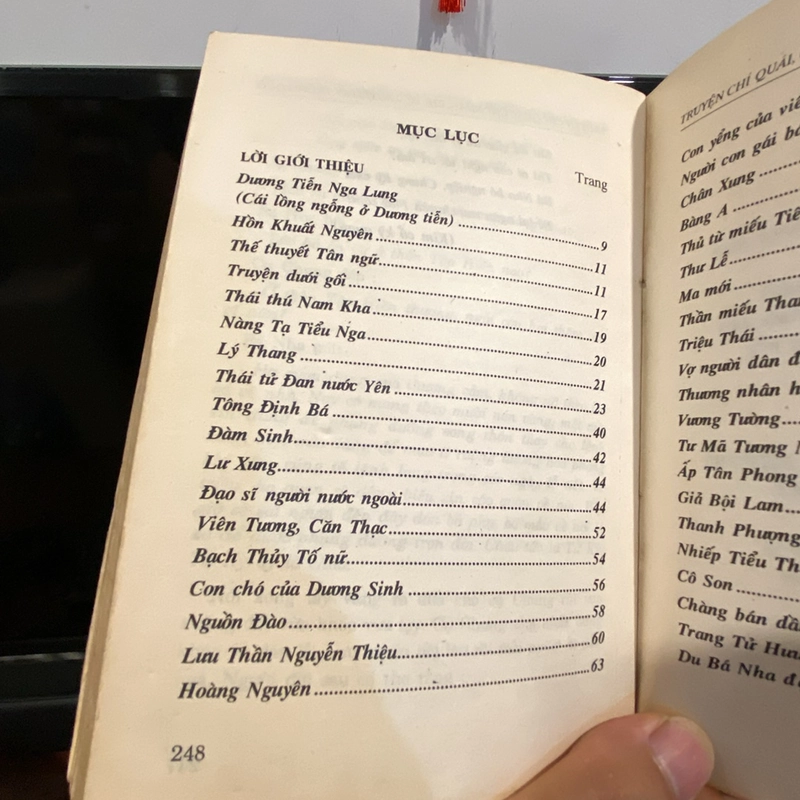 MỤC LỤC
LỜI GIỚI THIỆU
Trang
Dương Tiễn Nga Lung
(Cái lồng ngỗng ở Dương tiễn) 9
Hồn Khuất Nguyên 11
Thế thuyết Tân ngữ 11
Truyện dưới gối 17
Thái thú Nam Kha 19
Nàng Tạ Tiểu Nga 20
Lý Thang 21
Thái tử Đan nước Yên 23
Tông Định Bá 40
Đàm Sinh 42
Lư Xung 44
Đạo sĩ người nước ngoài 44
Viên Tương, Căn Thạc 52
Bạch Thủy Tố nữ 54
Con chó của Dương Sinh 56
Nguồn Đào 58
Lưu Thần Nguyễn Thiệu 60
Hoàng Nguyên 63
248
TRUYỆN CHÍ QUÁI,
Con yểng của
Người con gái
Chân Xung
Bàng A
Thủ từ miếu
Thư Lễ
Ma mới
Thần miếu
Triệu Thái
Vợ người dân
Thương nhân
Vương Tường
Tư Mã Tương
Ấp Tân Phong
Giả Bội Lam
Thanh Phượng
Nhiếp Tiểu
Cô Son
Chàng bán dầu
Trang Tử
Du Bá Nha